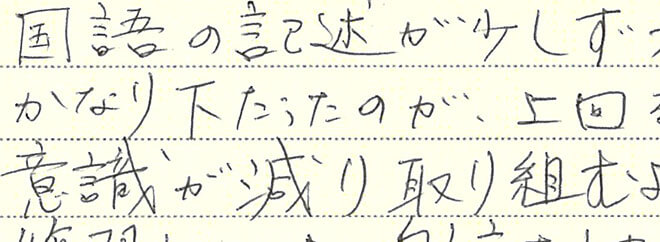 国語の記述が少しず
かなり下だったのが、上回
意識が減り取り組むよ